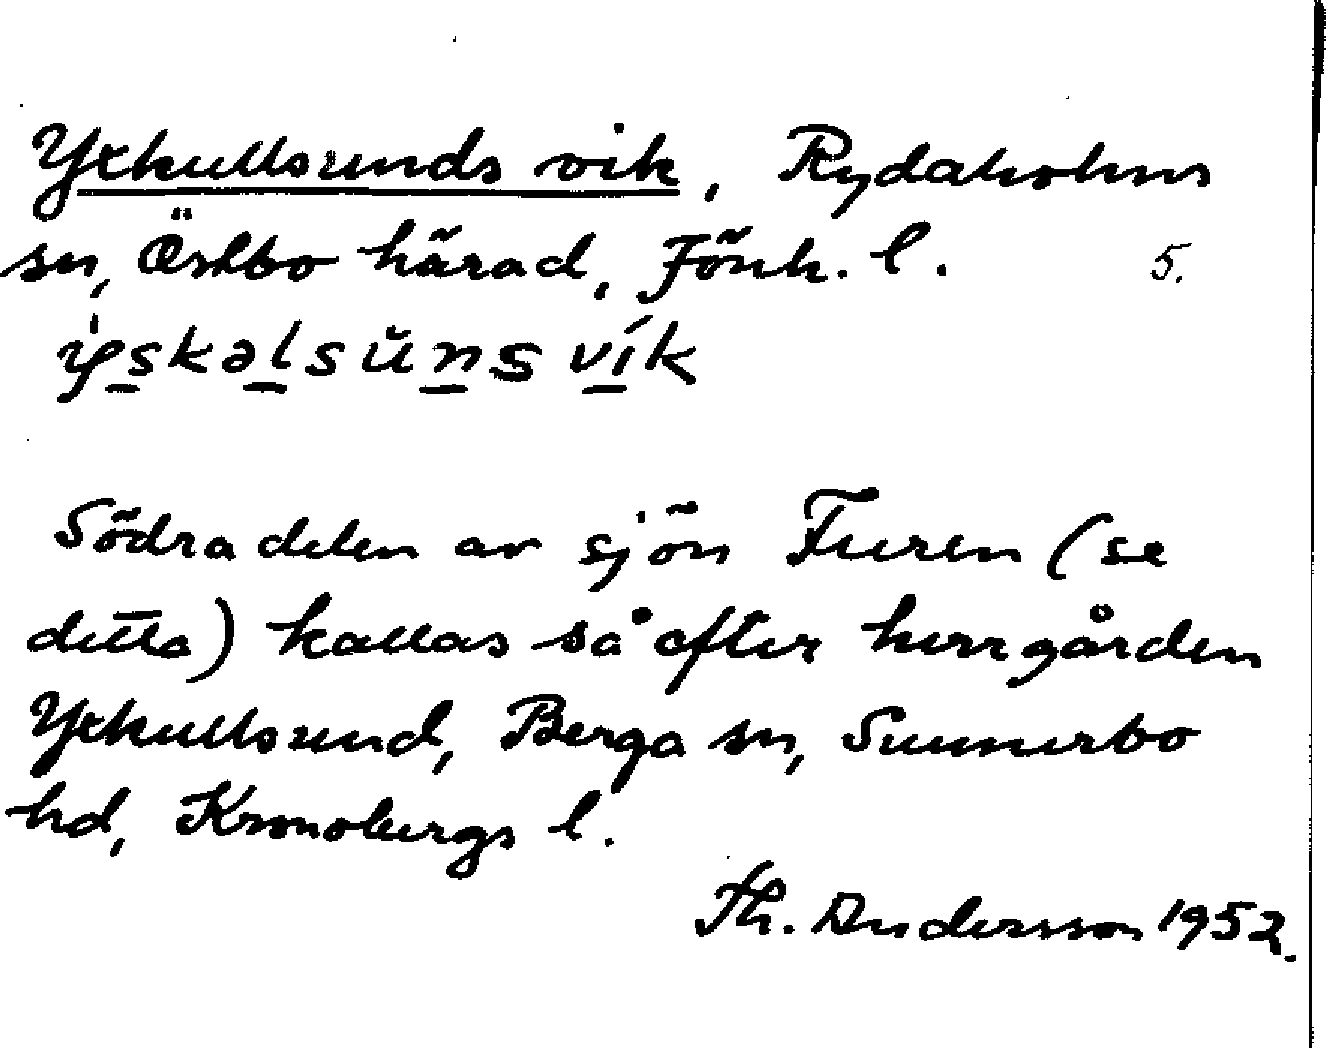 Yxkullsunds vik, Rydaholms
sn, Östbo härad, Jönk. l. 5.
yskəlsŭns vík
Södra delen av sjön Furen (se
detta) kallas så efter herrgården
Yxkullsund, Berga sn, Sunnerbo
hd, Kronobergs l.
Th. Andersson 1952.